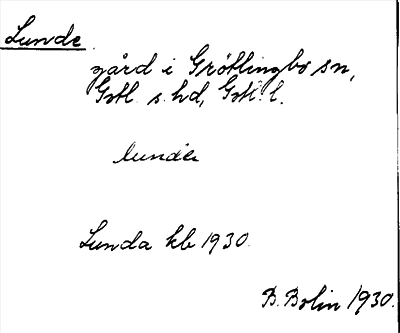 Lunde
gård i Grötlingbo sn,
Gotl. s. hd, Gotl. l.
lunde
Lunda kb 1930.
B. Bolin 1930.